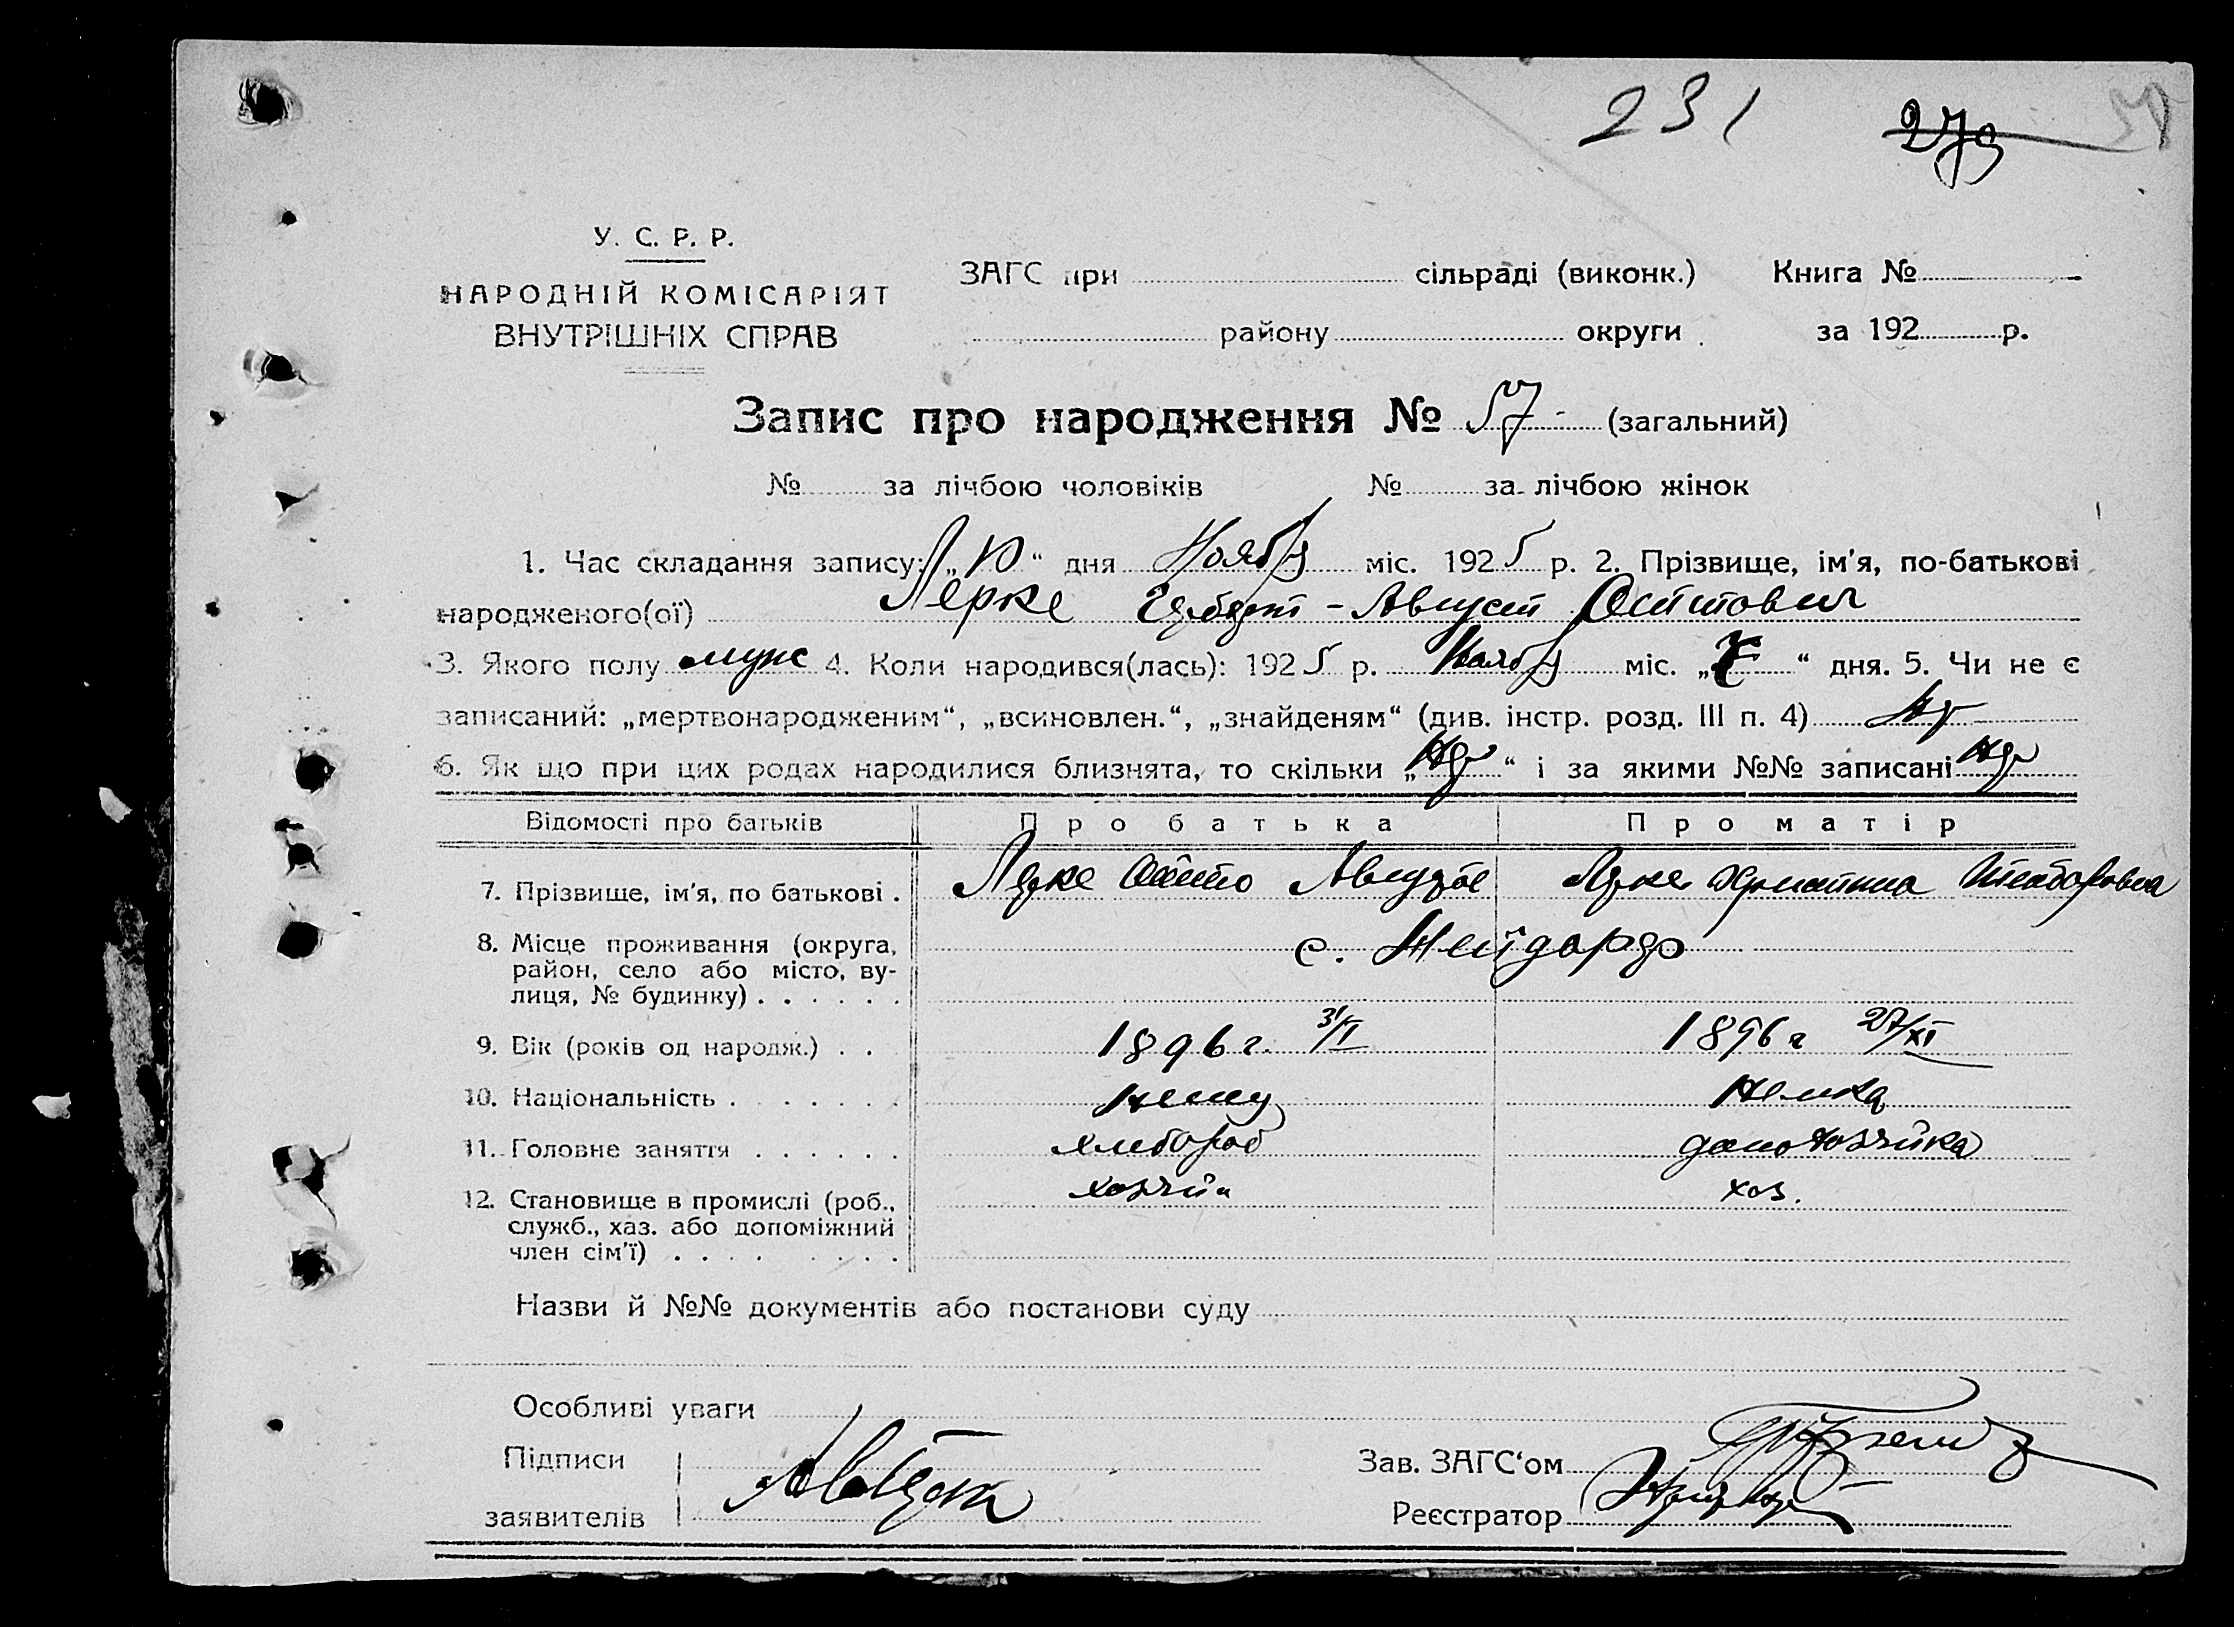 231 279
У. С. Р. Р.
НАРОДНІЙ КОМІСАРІЯТ
ВНУТРІШНІХ СПРАВ
ЗАГС при сільраді (виконк.) Книга №
району округи за 192 р.
Запис про народження № 57 (загальний)
№ за лічбою чоловіків № за лічбою жінок
1. Час складання запису: „10“ дня Ноября міс. 1925 р. 2. Прізвище, ім'я, по-батькові
народженого(ої) Лерке Герберт - Август Оттович
3. Якого полу муж 4. Коли народився(лась): 1925 р. Ноября міс. „7“ дня. 5. Чи не є
записаний: „мертвонародженим“, „всиновлен.“, „знайденям“ (див. інстр. розд. III п. 4)
6. Як що при цих родах народилися близнята, то скільки „ “ і за якими №№ записані
Відомості про батьків Про батька Про матір
7. Прізвище, ім'я, по батькові . Лерке Отто Август Лерке Христина
8. Місце проживання (округа,
район, село або місто, ву-
лиця, № будинку) . . . . . . с. Нейдорф
9. Вік (років од народж.) . . 1896 г. 31/I 1896 г 27/XI
10. Національність . . . . . . . немец немка
11. Головне заняття . . . . . . хлебороб домохозяйка
12. Становище в промислі (роб.,
служб., хаз. або допоміжний
член сім'ї) . . . . . . . . хозяин хоз.
Назви й №№ документів або постанови суду
Особливі уваги
Підписи
заявителів
Зав. ЗАГС‘ом
Реєстратор